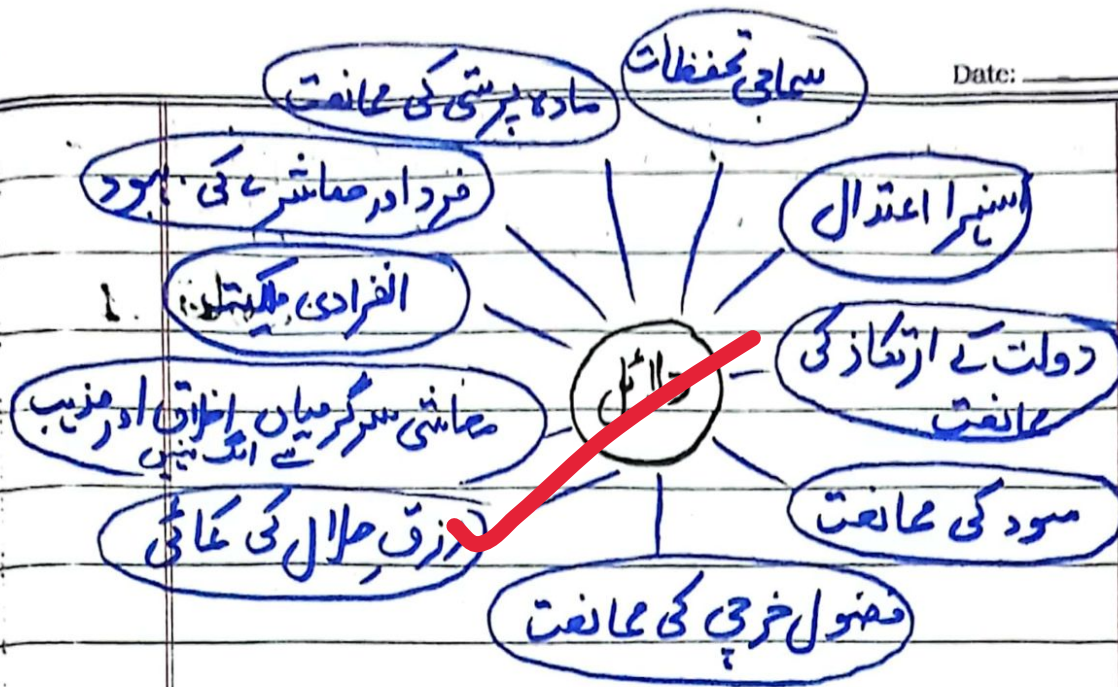 Date:
سماجی تحفظات
مادہ پرستی کی ممانعت
فرد اور معاشرے کی بہبود
سنہرا اعتدال
انفرادی ملکیت
دولت کے ارتکاز کی
ممانعت
دلائل
معاشی سرگرمیاں اخلاق اور مذہب
سے الگ نہیں
سود کی ممانعت
رزقِ حلال کی کمائی
فضول خرچی کی ممانعت